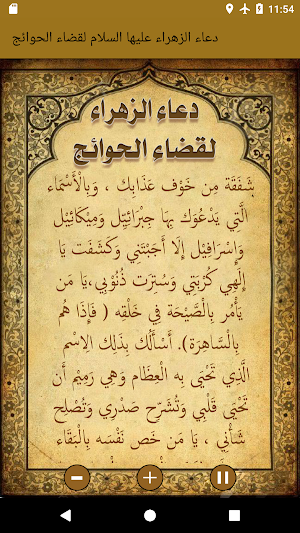 11:54
دعاء الزهراء عليها السلام لقضاء الحوائج
دعاء الزهراء
لقضاء الحوائج
شَفَقَة مِن خَوْف عَذَابِكَ ، وَبِالْأَسْمَاء
الَّتِي يَدْعُوَك بِهَا جِبْرَائِيْل وَمِيْكَائِيْل
وَإِسْرَافِيْل إِلَّا أَجَبْتَنِي وَكَشَفْتَ يَا
إِلَهِي كُرْبَتِي وَسُتِرَت ذُنُوْبِي،يَا مَن
يَأْمُر بِالْصَّيْحَة فِي خَلْقِه ( فَإِذَا هُم
بِالْسَّاهِرَة). أَسْأَلُك بِذَلِك الِاسْم
الَّذِي تَحْيَى بِه الْعِظَام وَهِي رَمِيْم أَن
تَحْيَى قَلْبِي وَتُشَرِّح صَدْرِي وَتُصْلِح
شَأْنِي ، يَا مَن خَص نَفْسَه بِالْبَقَاء